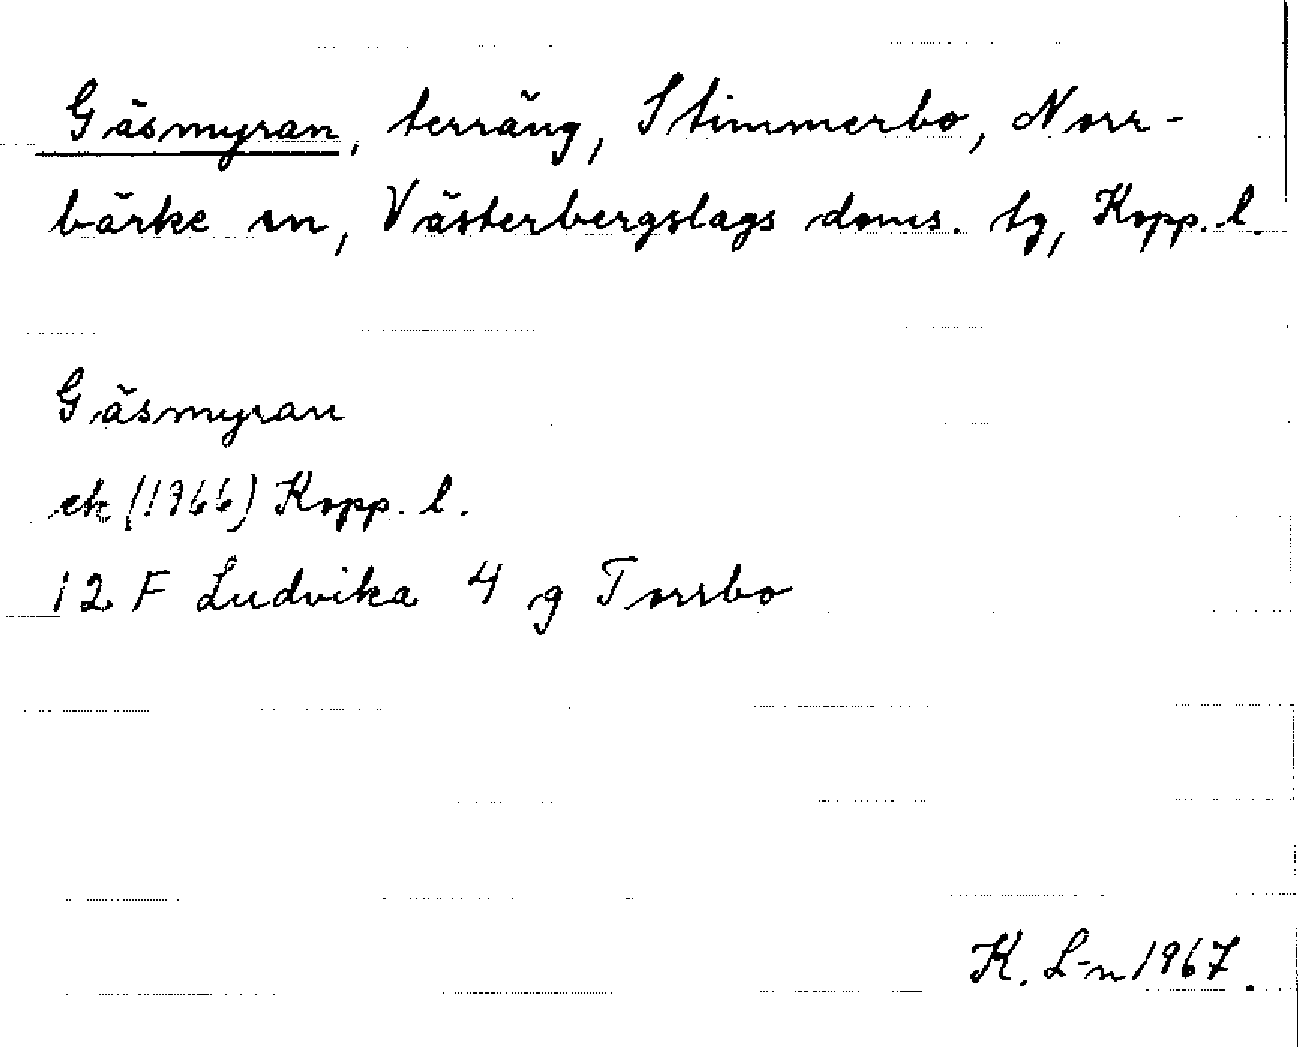 Gäsmyran, terräng, Stimmerbo, Norr-
bärke sn, Västerbergslags doms. tg, Kopp. l.
Gäsmyran
ek (1966) Kopp. l.
12 F Ludvika 4 g Torrbo
K. L-n 1967.